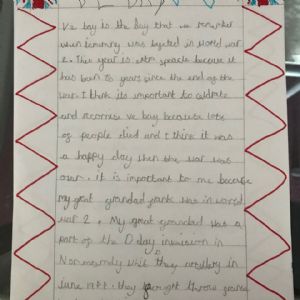 VE DAY
Ve bay is the day that we remember
when Germany was byected in world war
2. This year is extra speacle because it
has been 70 years since the end of the
war. I think its important to celebrate
and recornise ve bay because lots
of people died and I think it was
a happy day when the war was
over. It is important to me because
my great grandad frank was in world
war 2. My great grandad was a
part of the D day invasion in
Normandy with the artillery in
June 1944. they fought